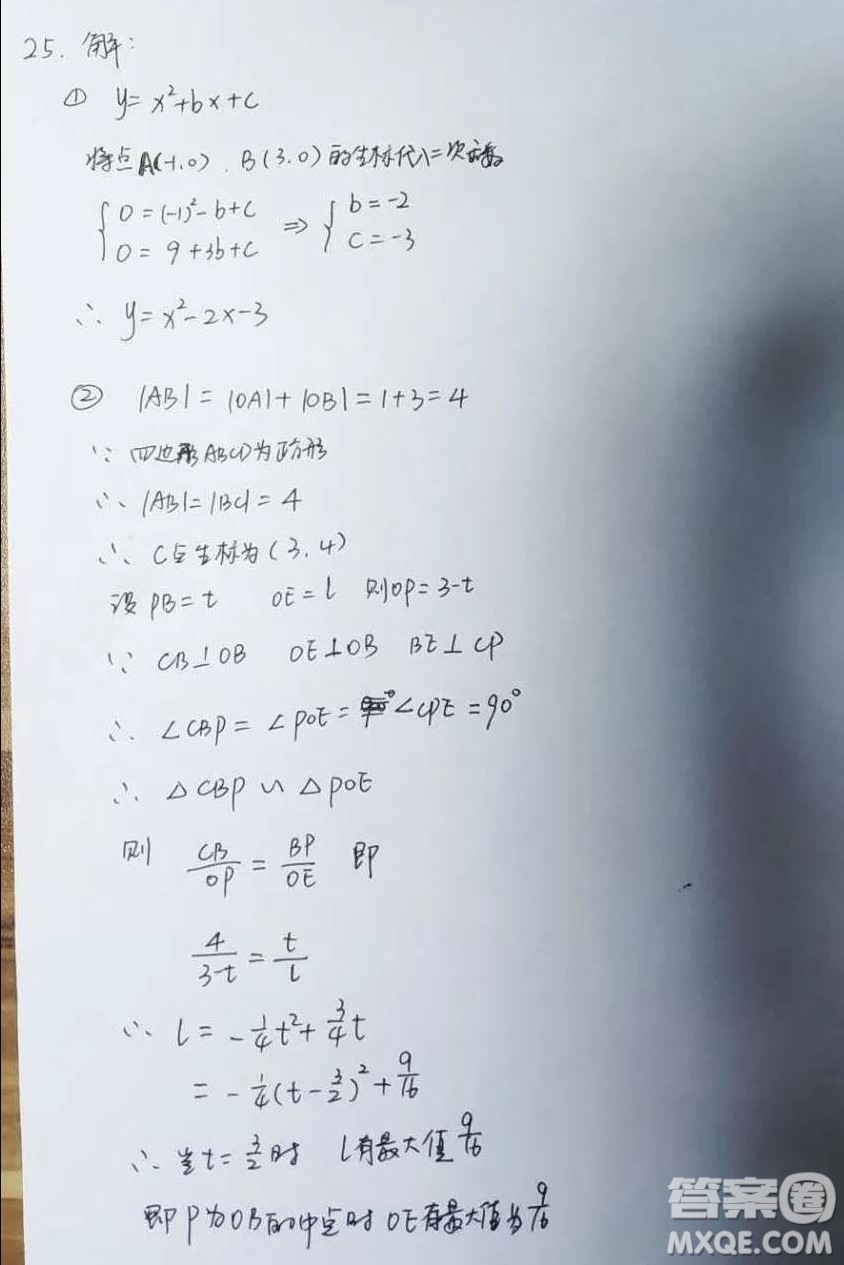 25. 解：
① y=x²+bx+c
将点A(-1,0)、B(3,0)的坐标代入二次函数
{0=(-1)²-b+c ⇒ {b=-2
{0=9+3b+c {c=-3
∴ y=x²-2x-3
② |AB|=|OA|+|OB|=1+3=4
∵ 四边形ABCD为正方形
∴ |AB|=|BC|=4
∴ C点坐标为(3,4)
设PB=t OE=l 则OP=3-t
∵ CB⊥OB OE⊥OB BE⊥CP
∴ ∠CBP=∠POE=∠CPE=90°
∴ △CBP∽△POE
则 CB/OP=BP/OE 即
4/3-t=t/l
∴ l=-1/4t²+3/4t
=-1/4(t-3/2)²+9/16
∴ 当t=3/2时 l有最大值9/16
即P为OB的中点时OE有最大值为9/16
答案圈
MXQE.COM